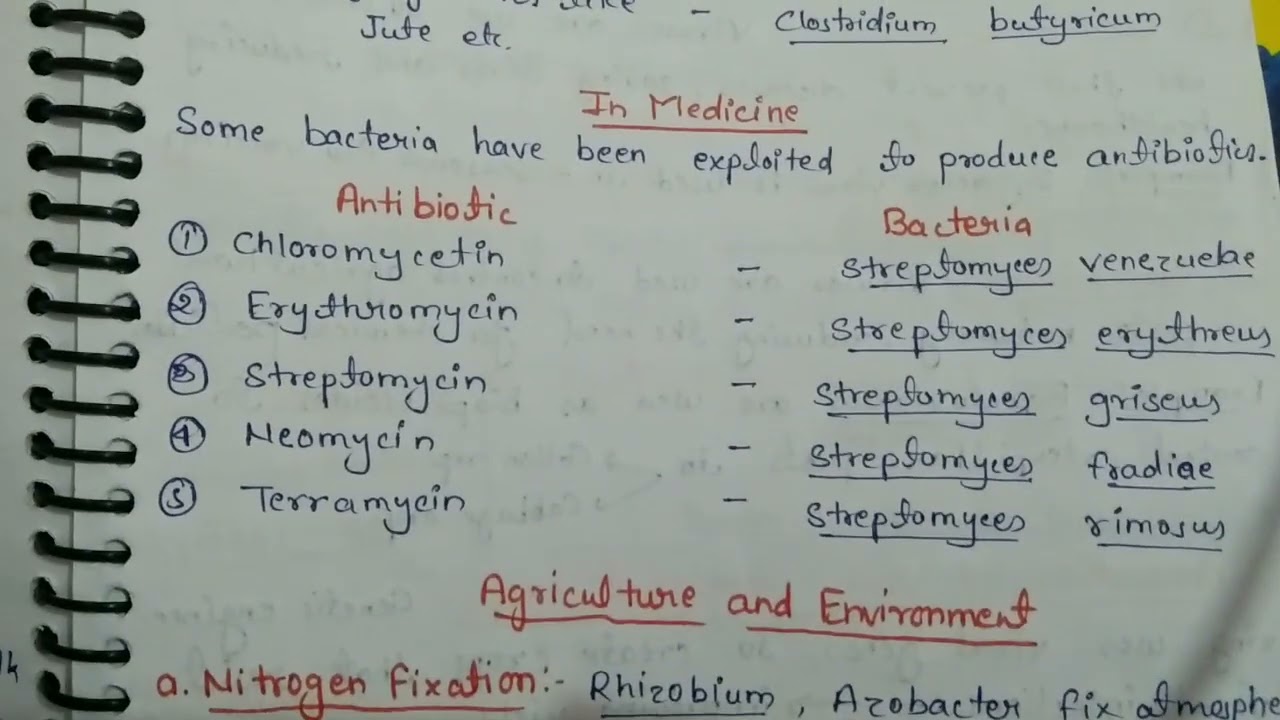 Jute etc. - Clostridium butyricum
In Medicine
Some bacteria have been exploited to produce antibiotics.
Antibiotic Bacteria
① Chloromycetin - Streptomyces venezuelae
② Erythromycin - Streptomyces erythreus
③ Streptomycin - Streptomyces griseus
④ Neomycin - Streptomyces fradiae
⑤ Terramycin - Streptomyces rimosus
Agriculture and Environment
a. Nitrogen Fixation:- Rhizobium, Azobacter fix atmosphe